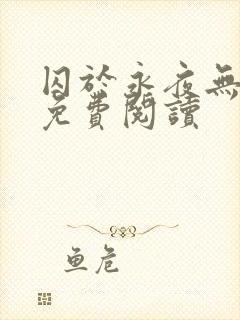 囚於永夜無
免費閱讀
鱼危